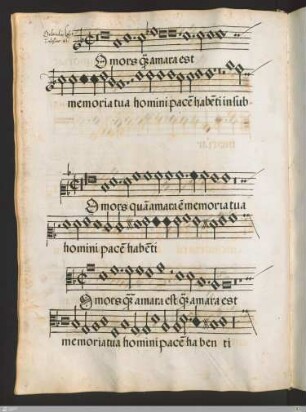 O mors q̃ amara est
memoria tua homini pacẽ habẽti in sub-
O mors quã amara ẽ memoria tua
homini pacẽ habẽti
O mors q̃ amara est q̃ amara est
memoria tua homini pacẽ ha ben ti